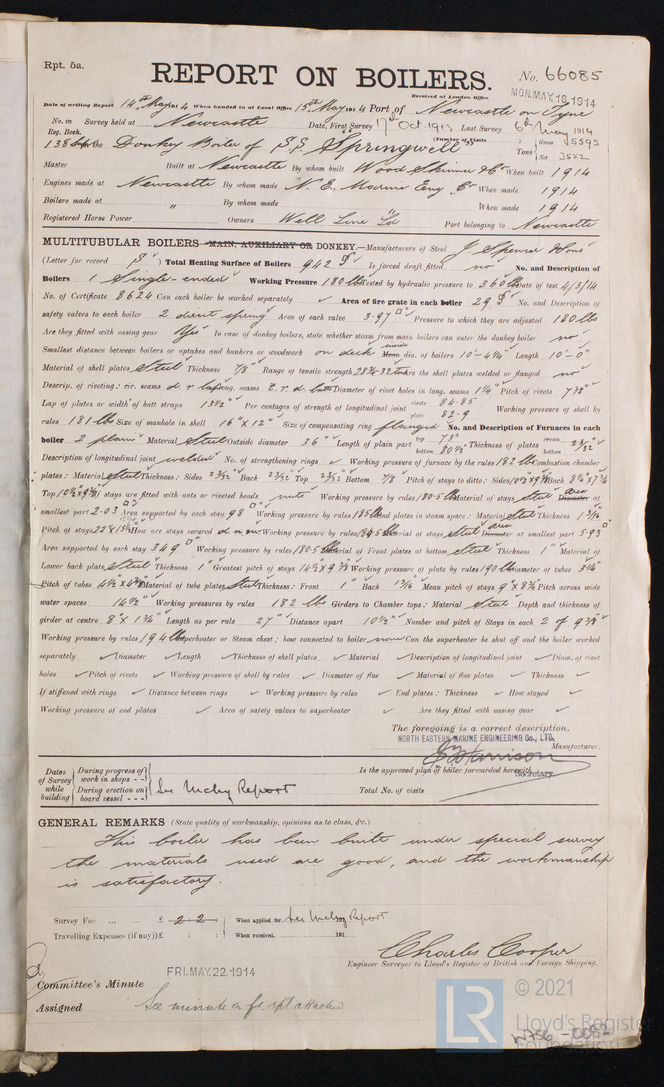 Rpt. 5a.
REPORT ON BOILERS.
No. 66085
Received at London Office
MON. MAY. 18 1914
Date of writing Report 14th May 1914 When handed in at Local Office 15th May 1914 Port of Newcastle on Tyne
No. in Survey held at Newcastle Date, First Survey 17th Oct 1913 Last Survey 6th May 1914
Reg. Book.
(Number of Visits
138 on the Donkey Boiler of S.S. "Springwell" Tons Gross 5593
Net 3552
Master Built at Newcastle By whom built Wood Skinner & Co When built 1914
Engines made at Newcastle By whom made N. E. Marine Eng Co When made 1914
Boilers made at " By whom made " When made 1914
Registered Horse Power Owners Well Line Ld Port belonging to Newcastle
MULTITUBULAR BOILERS MAIN, AUXILIARY OR DONKEY.—Manufacturers of Steel J. Spencer & Sons
(Letter for record S) Total Heating Surface of Boilers 942 Is forced draft fitted no No. and Description of
Boilers 1 Single-ended Working Pressure 180 lbs Tested by hydraulic pressure to 360 lbs Date of test 4/3/14
No. of Certificate 8624 Can each boiler be worked separately ✓ Area of fire grate in each boiler 29 No. and Description of
safety valves to each boiler 2 direct spring Area of each valve 3.97 Pressure to which they are adjusted 180 lbs
Are they fitted with easing gear Yes In case of donkey boilers, state whether steam from main boilers can enter the donkey boiler no
Smallest distance between boilers or uptakes and bunkers or woodwork on deck Mean dia. of boilers 10'-4¼" Length 10'-0"
Material of shell plates Steel Thickness 7/8" Range of tensile strength 28¾-32 tons Are the shell plates welded or flanged no
Descrip. of riveting: cir. seams d r lap long. seams t. r. d. butt Diameter of rivet holes in long. seams 1¼" Pitch of rivets 7⅞"
Lap of plates or width of butt straps 13½" Per centages of strength of longitudinal joint rivets 84.85 Working pressure of shell by
plate 82.9
rules 181 lbs Size of manhole in shell 16" x 12" Size of compensating ring flanged No. and Description of Furnaces in each
boiler 2 plain Material Steel Outside diameter 36" Length of plain part top 73" Thickness of plates crown 23/32"
bottom 80½" bottom
Description of longitudinal joint welded No. of strengthening rings ✓ Working pressure of furnace by the rules 182 lbs Combustion chamber
plates: Material Steel Thickness: Sides 23/32" Back 23/32" Top 23/32" Bottom 7/8 Pitch of stays to ditto: Sides Back
Top If stays are fitted with nuts or riveted heads nuts Working pressure by rules 180.5 lbs Material of stays Steel Diameter at
smallest part 2.03 Area supported by each stay 98 Working pressure by rules 185 lbs End plates in steam space: Material Steel Thickness 1 3/16"
Pitch of stays How are stays secured Working pressure by rules Material of stays Steel area Diameter at smallest part 5.93
Area supported by each stay 349 Working pressure by rules 180.5 lbs Material of Front plates at bottom Steel Thickness 1" Material of
Lower back plate Steel Thickness 1" Greatest pitch of stays Working pressure of plate by rules 190 lbs Diameter of tubes 3¼"
Pitch of tubes Material of tube plates Steel Thickness: Front 1" Back 13/16" Mean pitch of stays Pitch across wide
water spaces 14½" Working pressures by rules 182 lbs Girders to Chamber tops: Material Steel Depth and thickness of
girder at centre 8" x 1¾" Length as per rule 27" Distance apart 10½" Number and pitch of Stays in each 2 of 9⅜"
Working pressure by rules 194 lbs Superheater or Steam chest; how connected to boiler none Can the superheater be shut off and the boiler worked
separately ✓ Diameter ✓ Length ✓ Thickness of shell plates ✓ Material ✓ Description of longitudinal joint ✓ Diam. of rivet
holes ✓ Pitch of rivets ✓ Working pressure of shell by rules ✓ Diameter of flue ✓ Material of flue plates ✓ Thickness ✓
If stiffened with rings ✓ Distance between rings ✓ Working pressure by rules ✓ End plates: Thickness ✓ How stayed ✓
Working pressure of end plates ✓ Area of safety valves to superheater ✓ Are they fitted with easing gear ✓
The foregoing is a correct description,
NORTH EASTERN MARINE ENGINEERING Co., LTD.
Harrison Manufacturer.
Secretary.
Dates of Survey while building
During progress of work in shops - -
During erection on board vessel - - -
See Mchy Report
Is the approved plan of boiler forwarded herewith
Total No. of visits
GENERAL REMARKS (State quality of workmanship, opinions as to class, &c.)
This boiler has been built under special survey
the materials used are good, and the workmanship
is satisfactory.
Survey Fee ... ... £ 2 : 2 : When applied for, See Mchy Report
Travelling Expenses (if any) £ : : When received, 191
Charles Cooper
Engineer Surveyor to Lloyd's Register of British and Foreign Shipping.
Committee's Minute FRI. MAY. 22 1914
Assigned See minute on fe. rpt attached
LR
© 2021
Lloyd's Register
Foundation
W756-0082